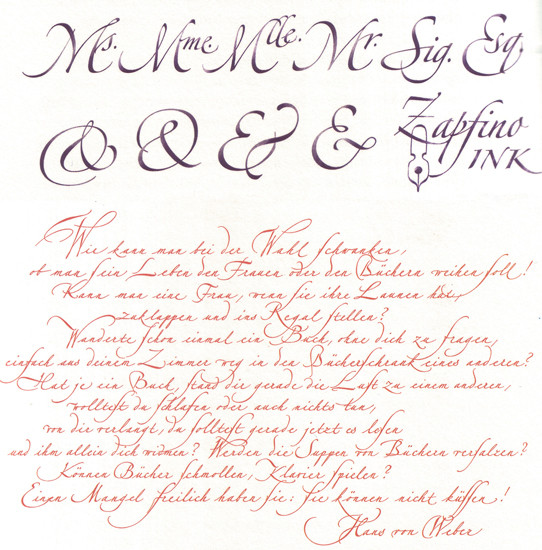 Ms. Mme. Mlle. Mr. Sig. Esq
& & & & Zapfino
INK
Wie kann man bei der Wahl schwanken,
ob man sein Leben den Frauen oder den Büchern weihen soll!
Kann man eine Frau, wenn sie ihre Launen hat,
zuklappen und ins Regal stellen?
Wanderte schon einmal ein Buch, ohne dich zu fragen,
einfach aus deinem Zimmer weg in den Bücherschrank eines anderen?
Hat je ein Buch, stand dir gerade die Lust zu einem anderen,
wolltest du schlafen oder auch nichts tun,
von dir verlangt, du solltest gerade jetzt es lesen
und ihm allein dich widmen? Werden die Suppen von Büchern versalzen?
Können Bücher schmollen, Klavier spielen?
Einen Mangel freilich haben sie: Sie können nicht küssen!
Hans von Weber